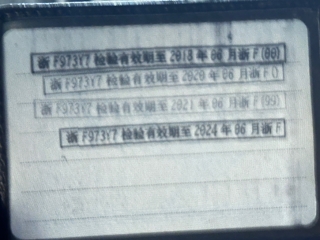 浙 F973Y7 检验有效期至 2018 年 06 月浙 F(00)
浙 F973Y7 检验有效期至 2020 年 06 月浙 F()
浙 F973Y7 检验有效期至 2021 年 06 月浙 F(99)
浙 F973Y7 检验有效期至 2024 年 06 月浙 F